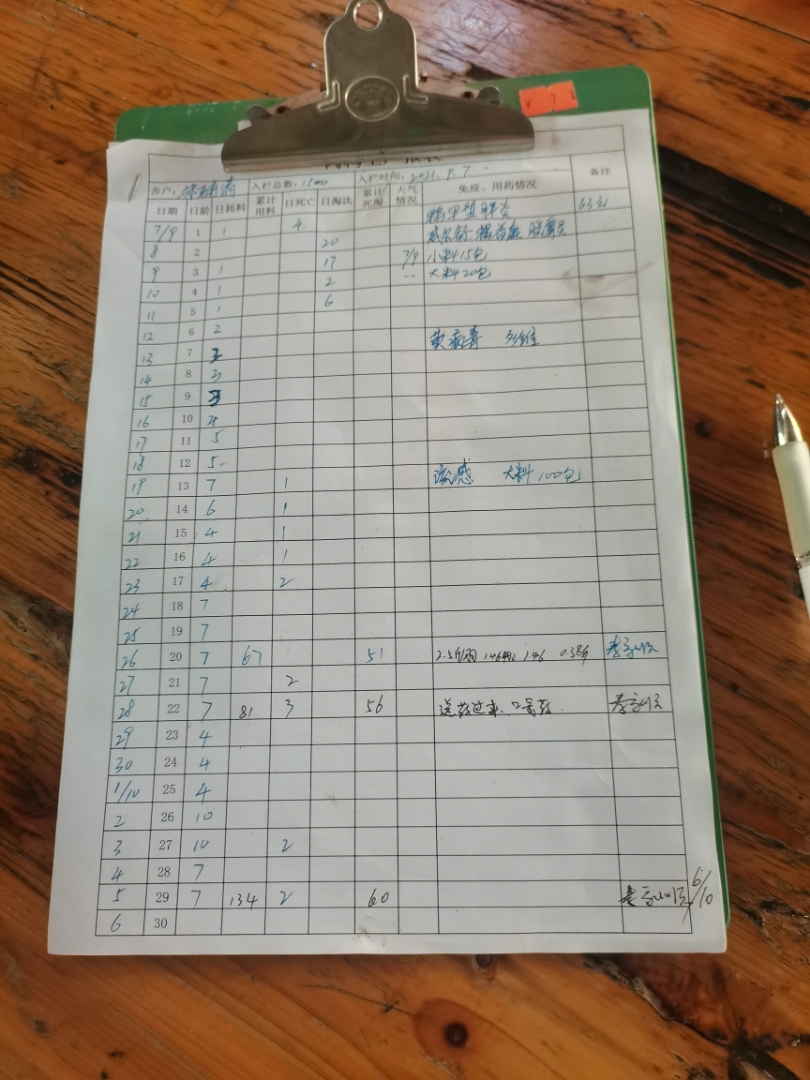 ¥ 7
1
养户: 入栏总数: 1500 入栏时间: 2021. 9. 7
日期 日龄 日耗料 累计用料 日死亡 日淘汰 累计死淘 天气情况 免疫、用药情况 备注
7/9 1 1 4 肝炎 63元
8 2 20
9 3 1 17 7/9 小料15包
10 4 1 2 大料20包
11 5 1 6
12 6 2
13 7 3 黄病毒 多维
14 8 3
15 9 3
16 10 4
17 11 5
18 12 5
19 13 7 1 流感 大料100包
20 14 6 1
21 15 4 1
22 16 4 1
23 17 4 2
24 18 7
25 19 7
26 20 7 67 51 1.46 0.38斤
27 21 7 2
28 22 7 81 3 56 送药过来
29 23 4
30 24 4
1/10 25 4
2 26 10
3 27 10 2
4 28 7
5 29 7 134 2 60 6/10
6 30